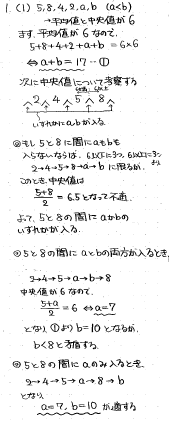 1. (1) 5, 8, 4, 2, a, b (a<b)
→平均値と中央値が 6
まず, 平均値が 6 なので,
5+8+4+2+a+b = 6×6
⇔ a+b = 17 … ①
次に中央値について考察する
2 4 5 8
いずれかに a, b が入る
5と8の間に a も b も
入らないならば,
2→4→5→8→a→b に限るが,
このとき, 中央値は
5+8/2 = 6.5 となって不適
よって, 5と8の間に a か b の
いずれかが入る.
5と8の間に a と b の両方が入るとき,
2→4→5→a→b→8
中央値が 6 なので
5+a/2 = 6 ⇔ a=7
となり, ①より b=10 となるが,
b<8 と矛盾する
5と8の間に a のみ入るとき,
2→4→5→a→8→b
となり,
a=7, b=10 が適する